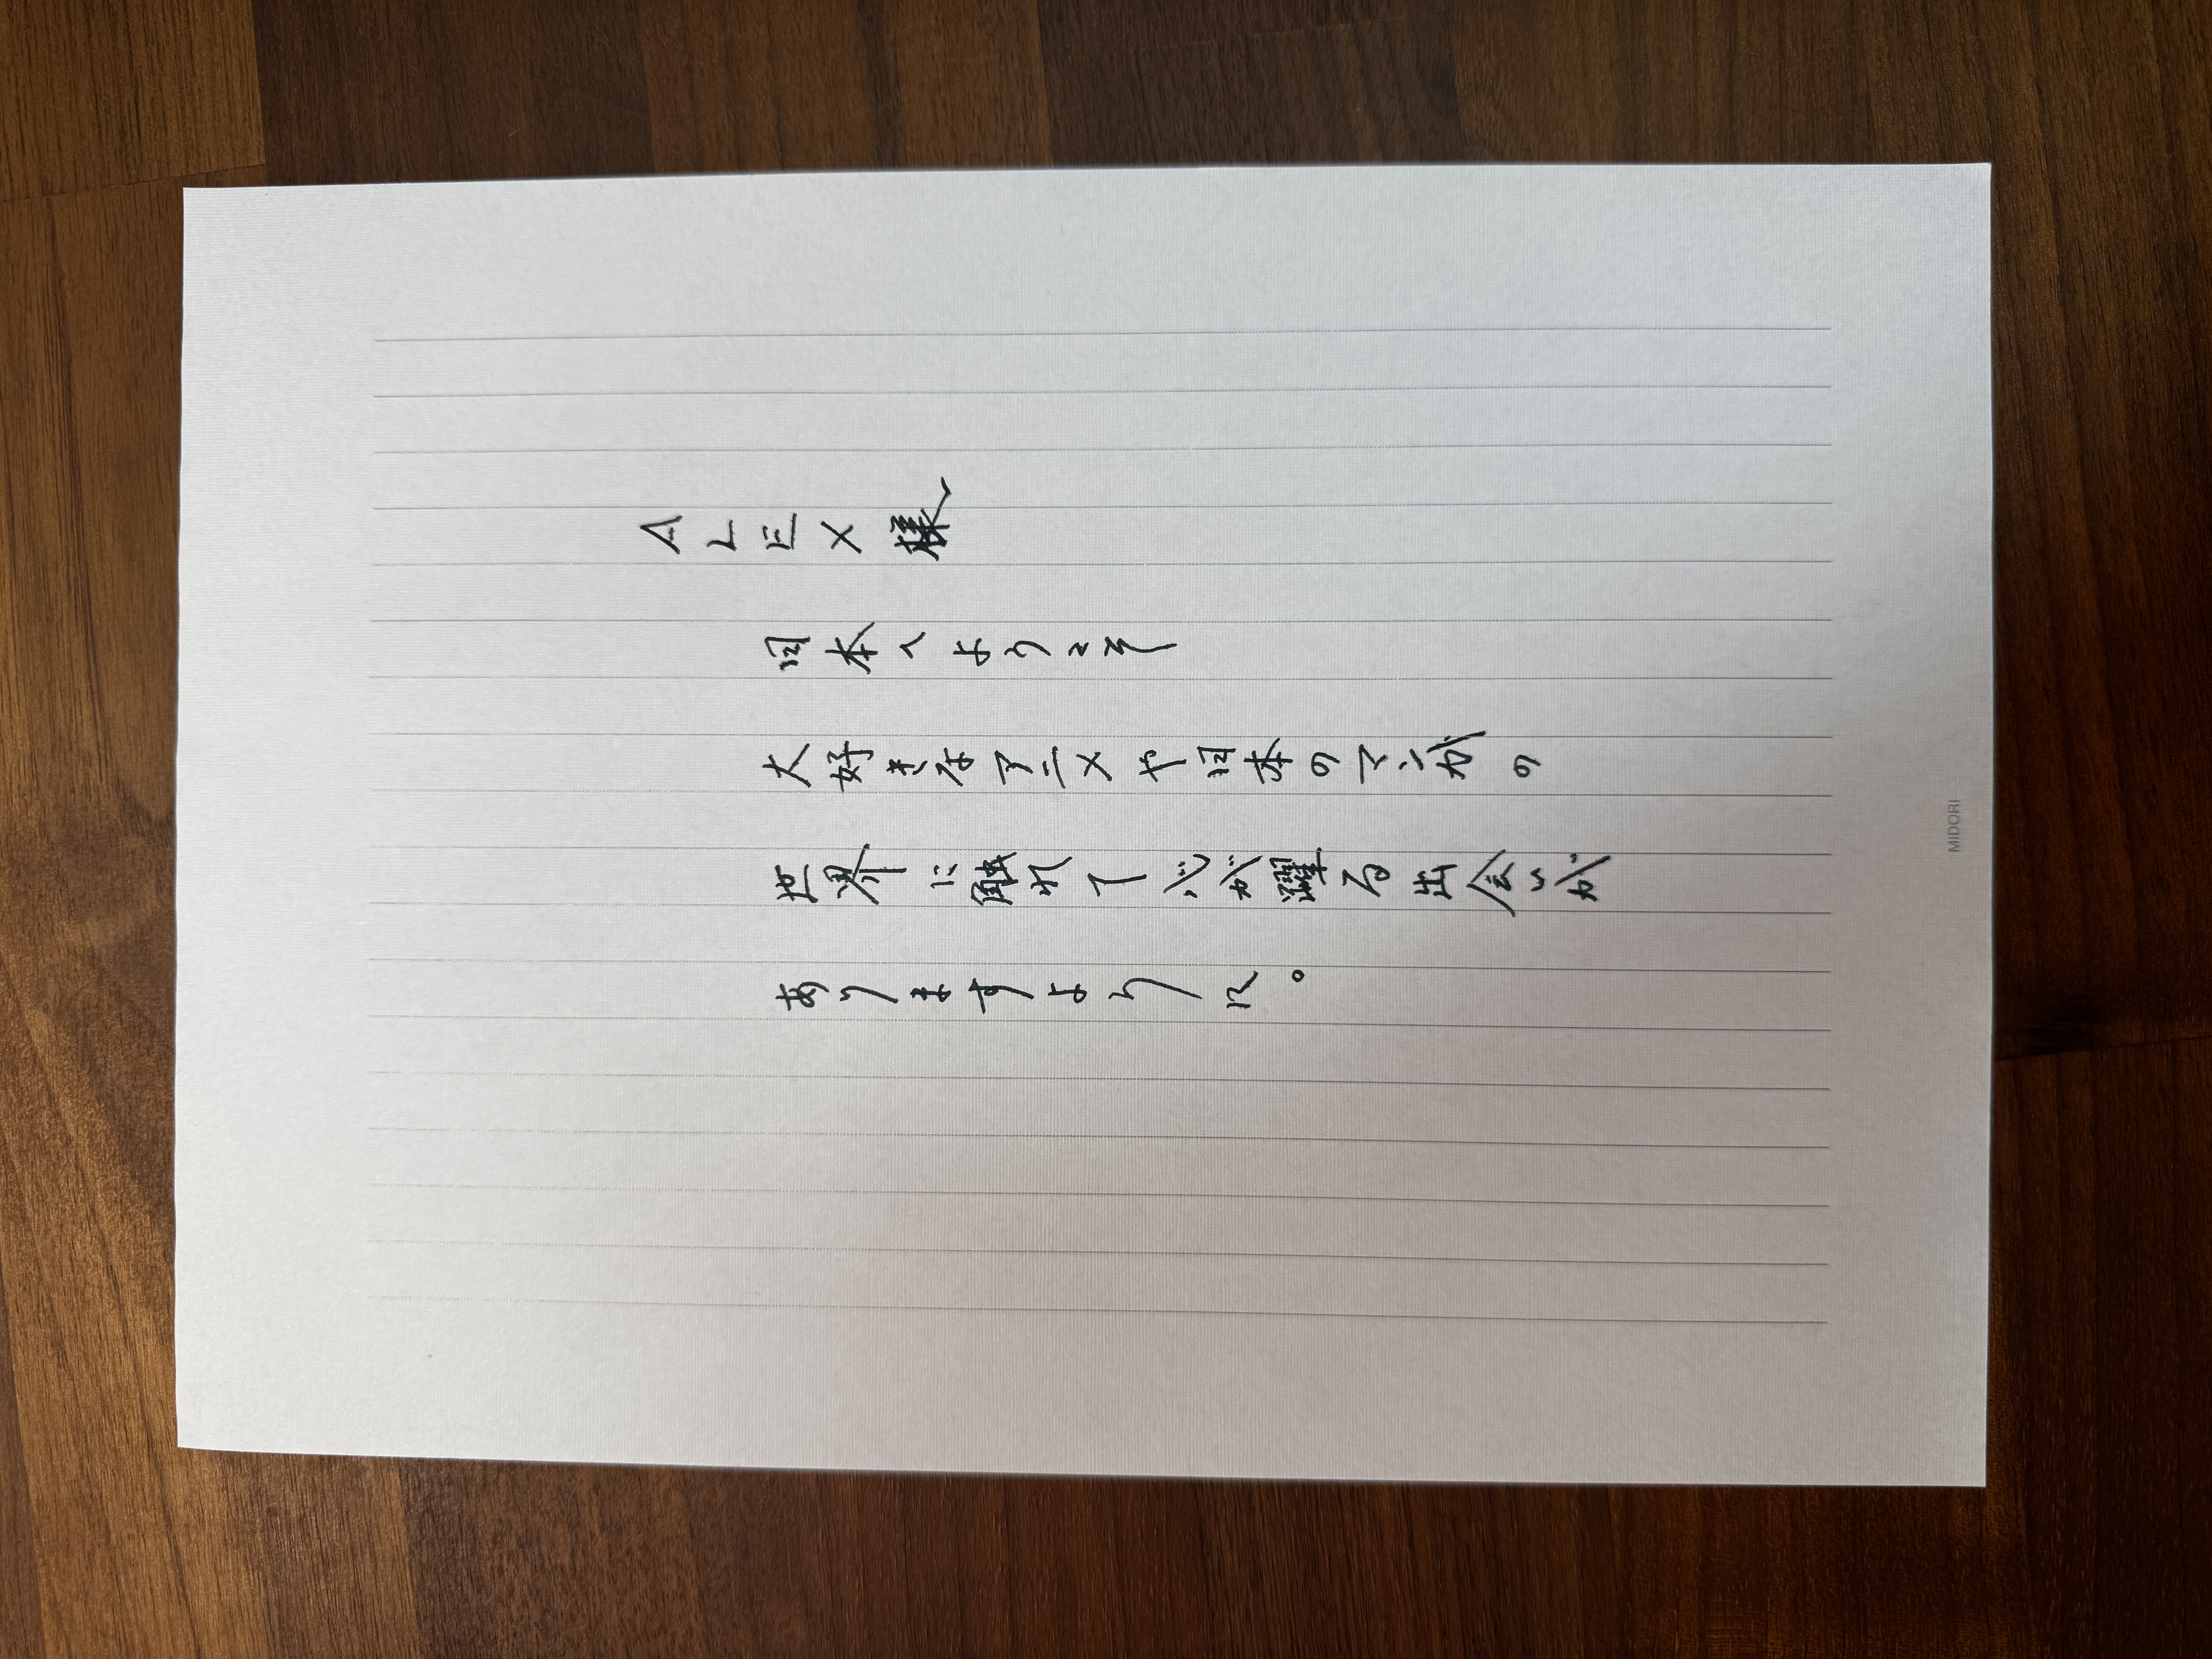 ALEX様
日本へようこそ
大好きなアニメや日本のマンガの
世界に触れて心が躍る出会いが
ありますように。
MIDORI